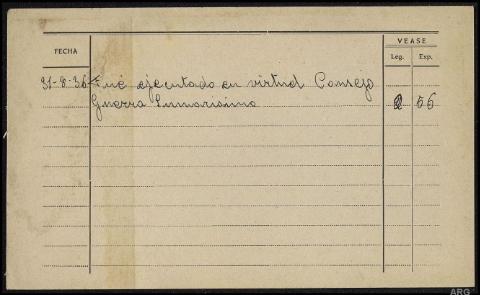 VEASE
FECHA
Leg. Exp.
31-8-36 Fué ejecutado en virtud Consejo
Guerra Sumarísimo 2 56
ARG